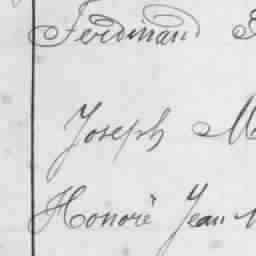 Ferdinand
Joseph M
Honoré Jean